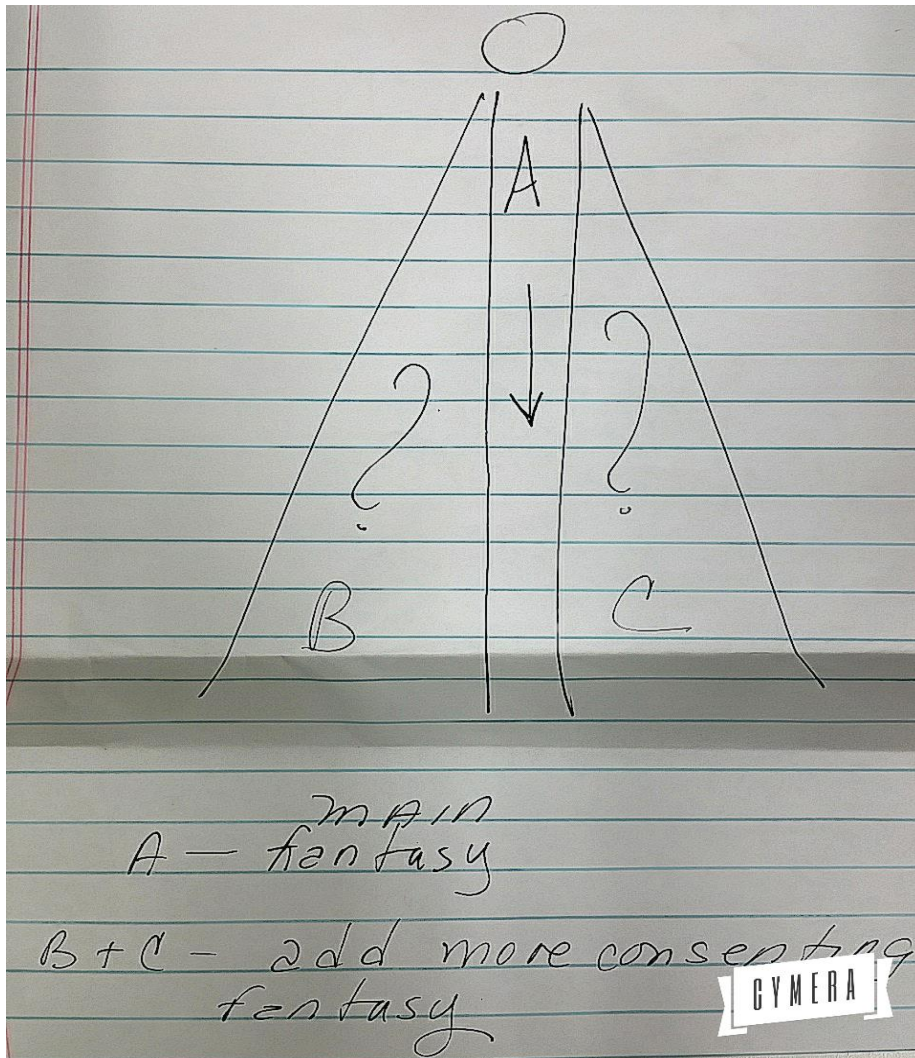 A
?
?
B
C
main
A – fantasy
B + C – add more consenting
fantasy
CYMERA